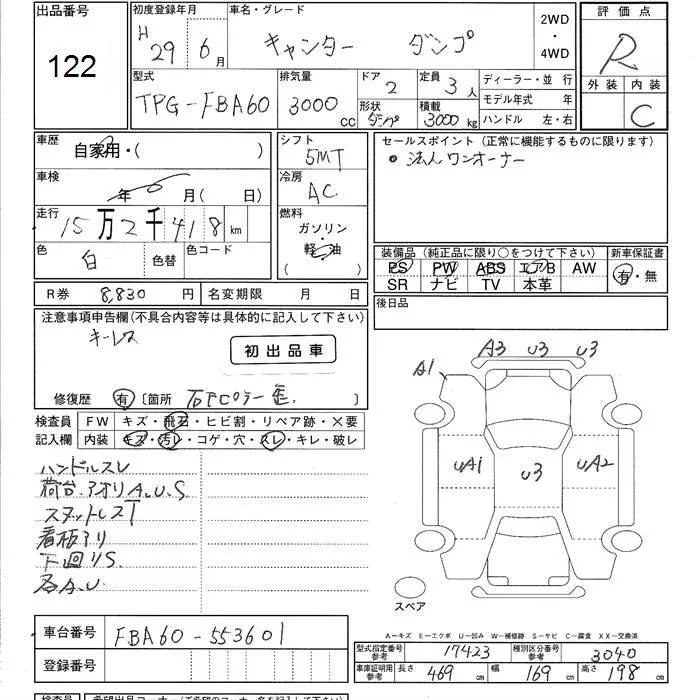 出品番号
122
初度登録年月
H 29年 6月
車名・グレード
キャンター ダンプ
2WD
・
4WD
評価点
R
外装 内装
C
型式
TPG-FBA60
排気量
3000
CC
ドア
2
形状
ダンプ
定員
3人
積載
3000kg
ディーラー・並行
モデル年式 年
ハンドル 左・右
車歴
自家用・( )
車検
年 月( 日)
走行
15万2千418km
色
白
色替
色コード
シフト
5MT
冷房
AC
燃料
ガソリン
軽油
( )
セールスポイント (正常に機能するものに限ります)
法人ワンオーナー
装備品 (純正品に限り○をつけて下さい)
PS PW ABS エアB AW
SR ナビ TV 本革
新車保証書
有・無
後日品
R券 8,830 円
名変期限 月 日
注意事項申告欄(不具合内容等は具体的に記入して下さい)
キーレス
初出品車
修復歴 有 〔箇所 〕
検査員
記入欄
FW キズ・飛石・ヒビ割・リペア跡・×要
内装 キズ・汚レ・コゲ・穴・スレ・キレ・破レ
ハンドルスレ
荷台.アオリA.U.S
スタットレスT
看板アリ
下廻りS.
各A.U
A3 U3 U3
A1
UA1 U3 UA2
スペア
A…キズ E…エクボ U…凹み W…補修跡 S…サビ C…腐食 XX…交換済
車台番号 FBA60-553601
登録番号
型式指定番号
参考
17423
種別区分番号
参考
3040
車庫証明用
参考
長さ 469cm 幅 169cm 高さ 198cm
検査員
希望出品コーナー(ご希望のコーナー名を記入下さい)